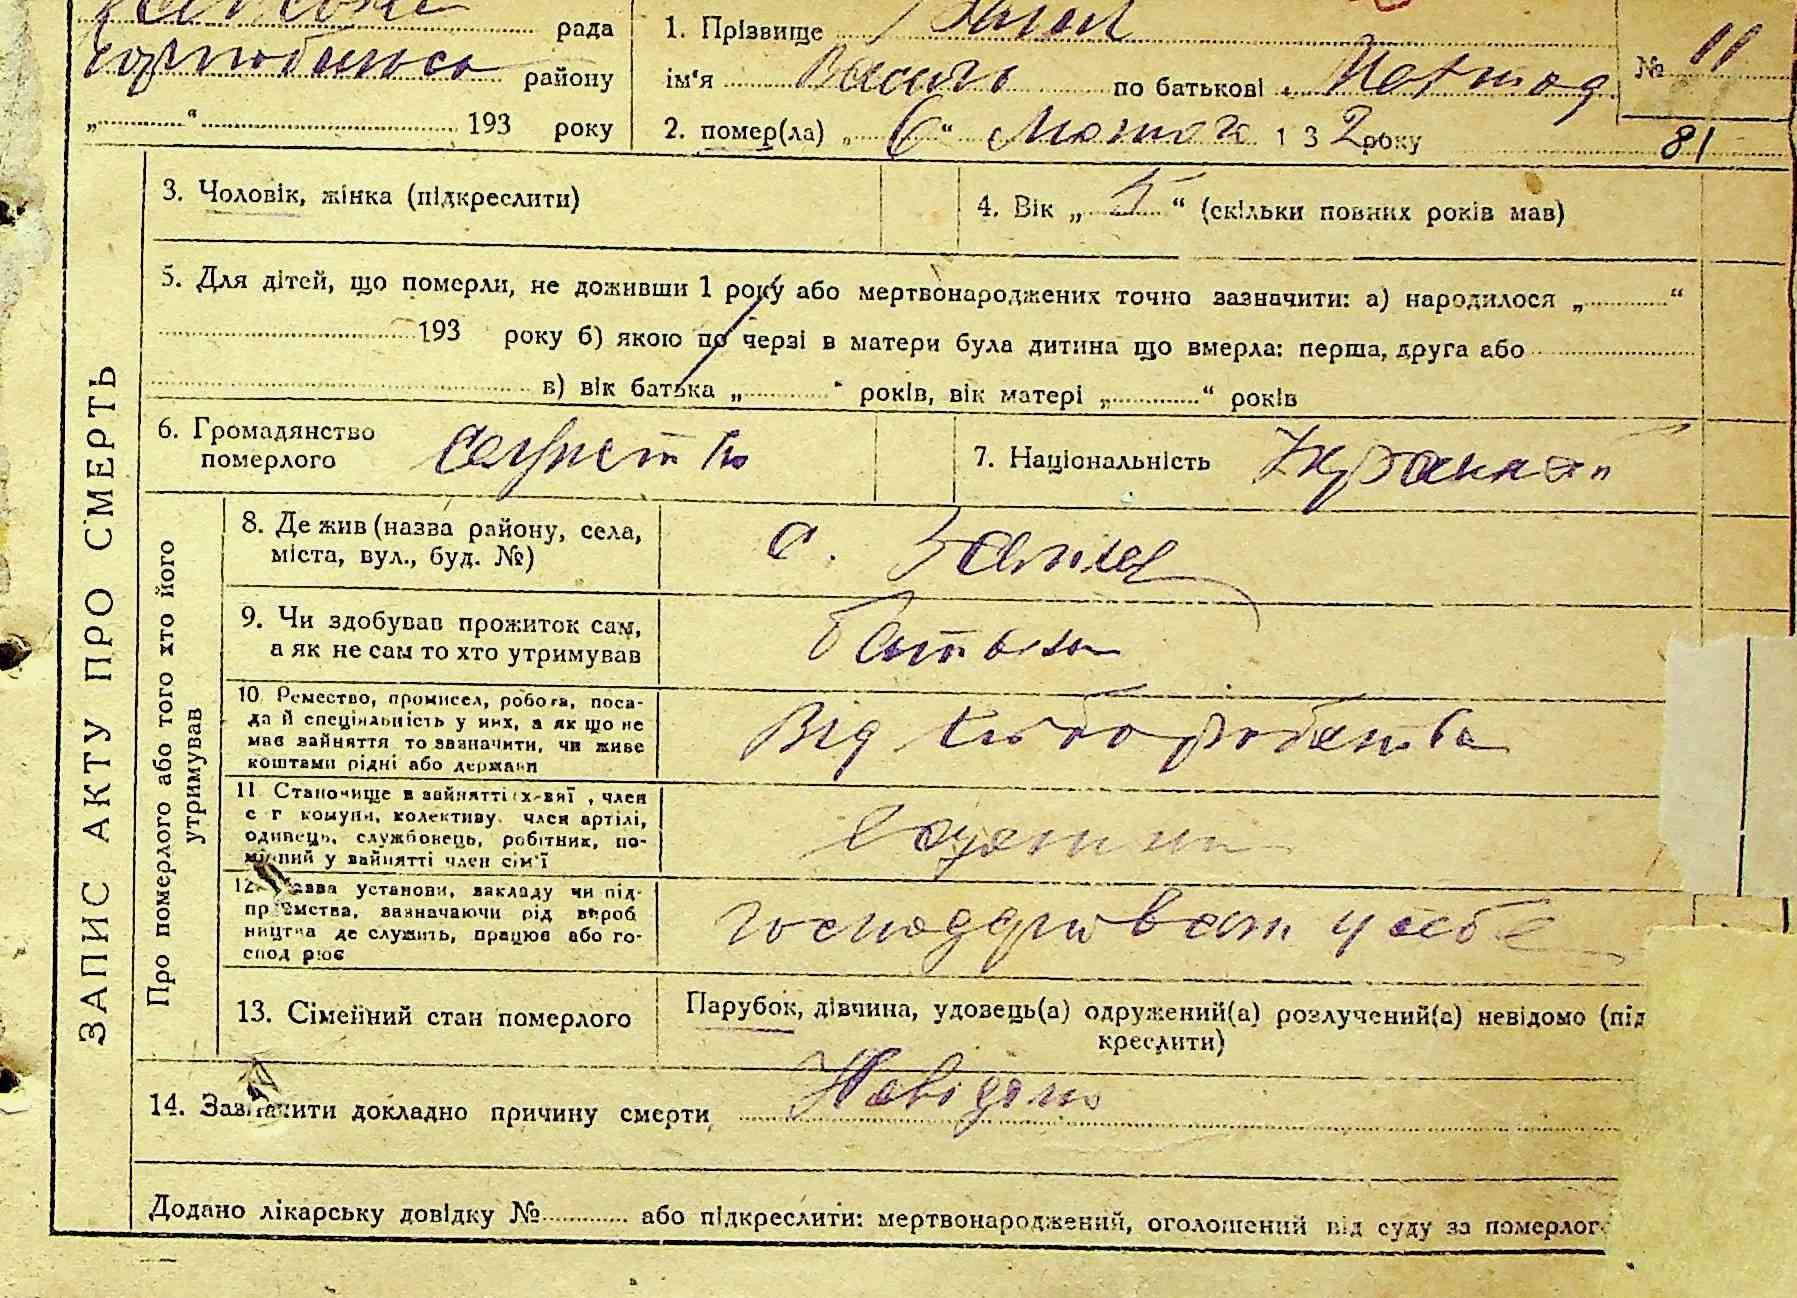 рада
району
„ “ 193 року
1. Прізвище
ім'я Василь по батькові
2. помер(ла) „ 6 “ Лютого 1 3 2 року
№ 11
81
ЗАПИС АКТУ ПРО СМЕРТЬ
3. Чоловік, жінка (підкреслити)
4. Вік „ 5 “ (скільки повних років мав)
5. Для дітей, що померли, не доживши 1 року або мертвонароджених точно зазначити: а) народилося „ “
193 року б) якою по черзі в матери була дитина що вмерла: перша, друга або
в) вік батька „ “ років, вік матері „ “ років
6. Громадянство
померлого
7. Національність
Про померлого або того хто його
утримував
8. Де жив (назва району, села,
міста, вул., буд. №)
с.
9. Чи здобував прожиток сам,
а як не сам то хто утримував
Батько
10. Ремество, промисел, робота, поса-
да й спеціяльність у них, а як що не
має зайняття то зазначити, чи живе
коштами рідні або держави
Від хліборобства
11. Становище в зайнятті , член
с г комуни, колективу, член артілі,
одинець, службовець, робітник, по-
у зайнятті член сім'ї
12. Назва установи, закладу чи під-
приємства, зазначаючи рід вироб
ництва де служить, працює або го-
спод рює
у себе
13. Сімейний стан померлого
Парубок, дівчина, удовець(а) одружений(а) розлучений(а) невідомо (під
креслити)
14. Зазначити докладно причину смерти Невідомо
Додано лікарську довідку № або підкреслити: мертвонароджений, оголошений від суду за померлого